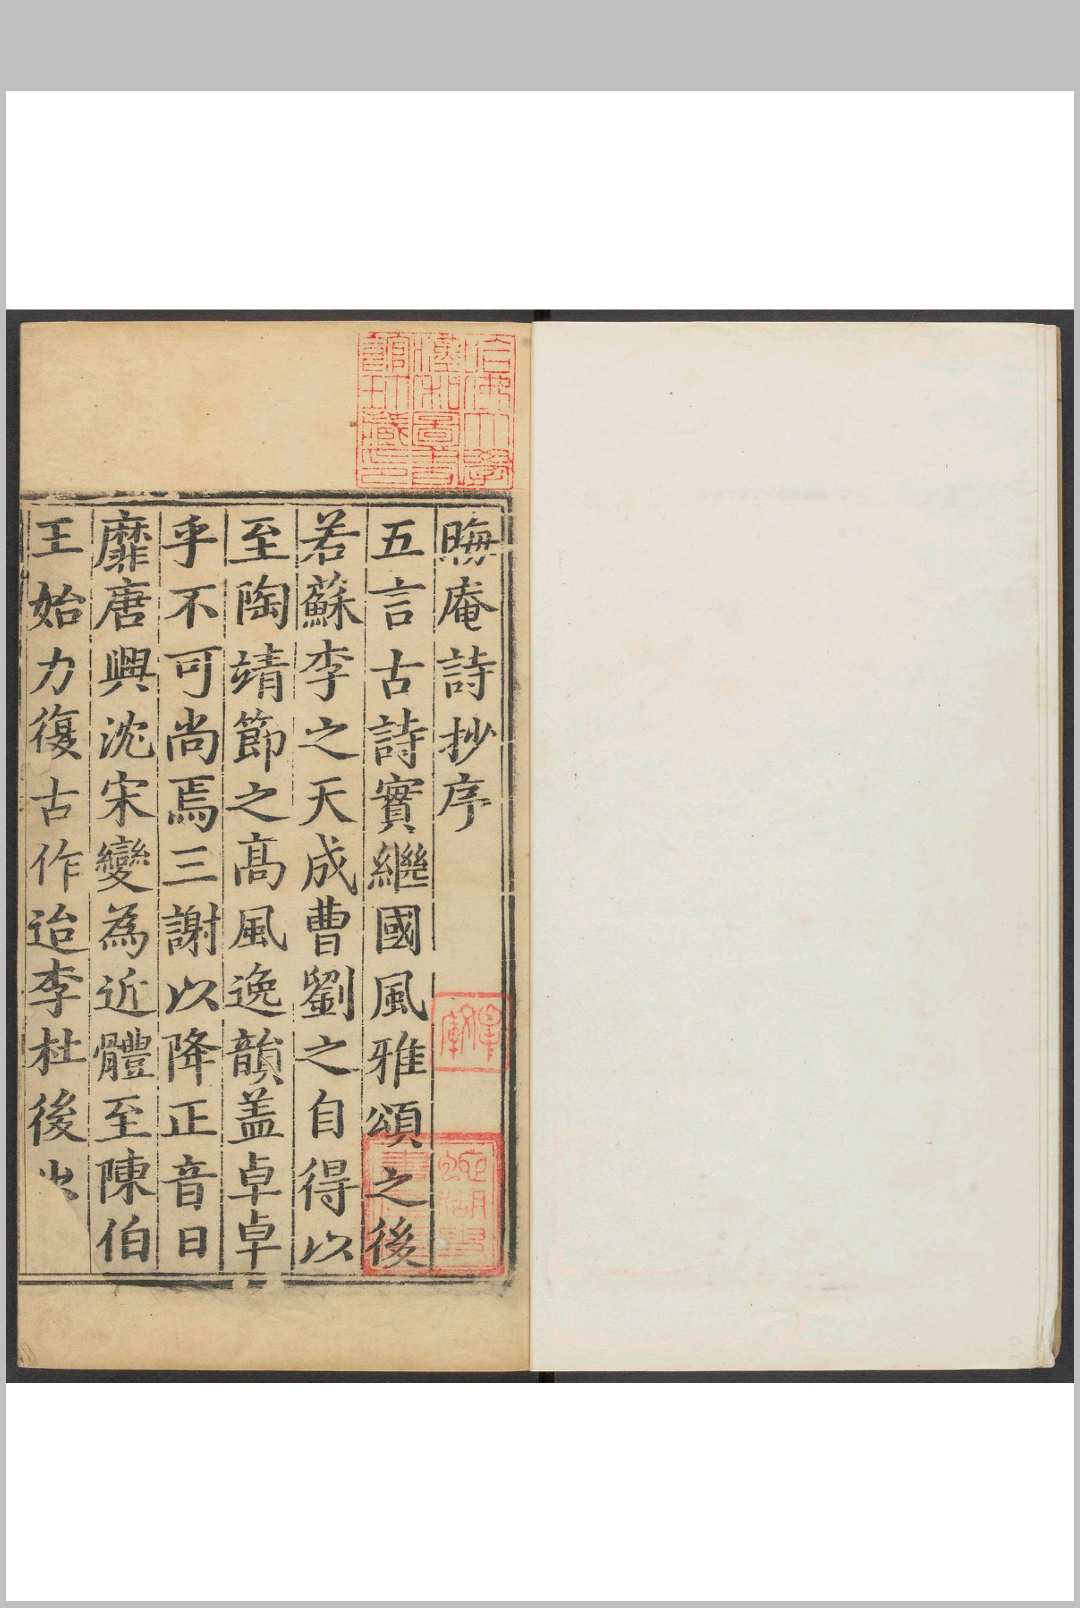 晦庵詩抄序
五言古詩實繼國風雅頌之後
若蘇李之天成曹劉之自得以
至陶靖節之髙風逸韻盖卓卓
乎不可尚焉三謝以降正音日
靡唐興沈宋變為近體至陳伯
王始力復古作迨李杜後出
哈佛大學
漢和圖書
館珍藏印